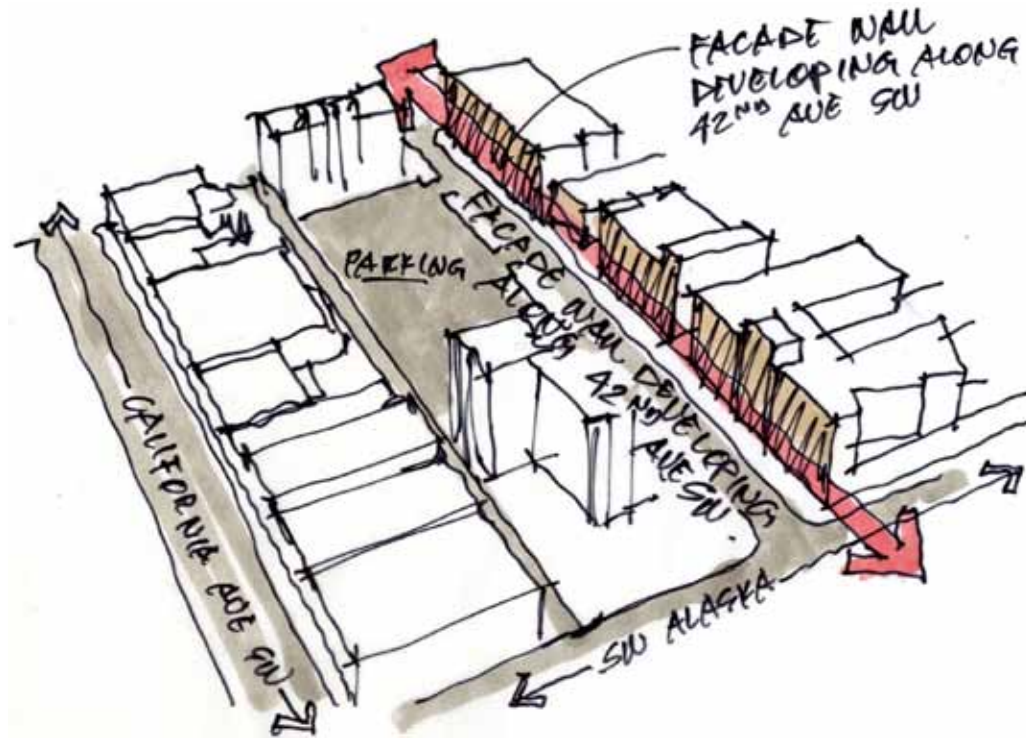 FACADE WALL
DEVELOPING ALONG
42ND AVE SW
FACADE WALL DEVELOPING
ALONG 42ND AVE SW
PARKING
CALIFORNIA AVE SW
SW ALASKA